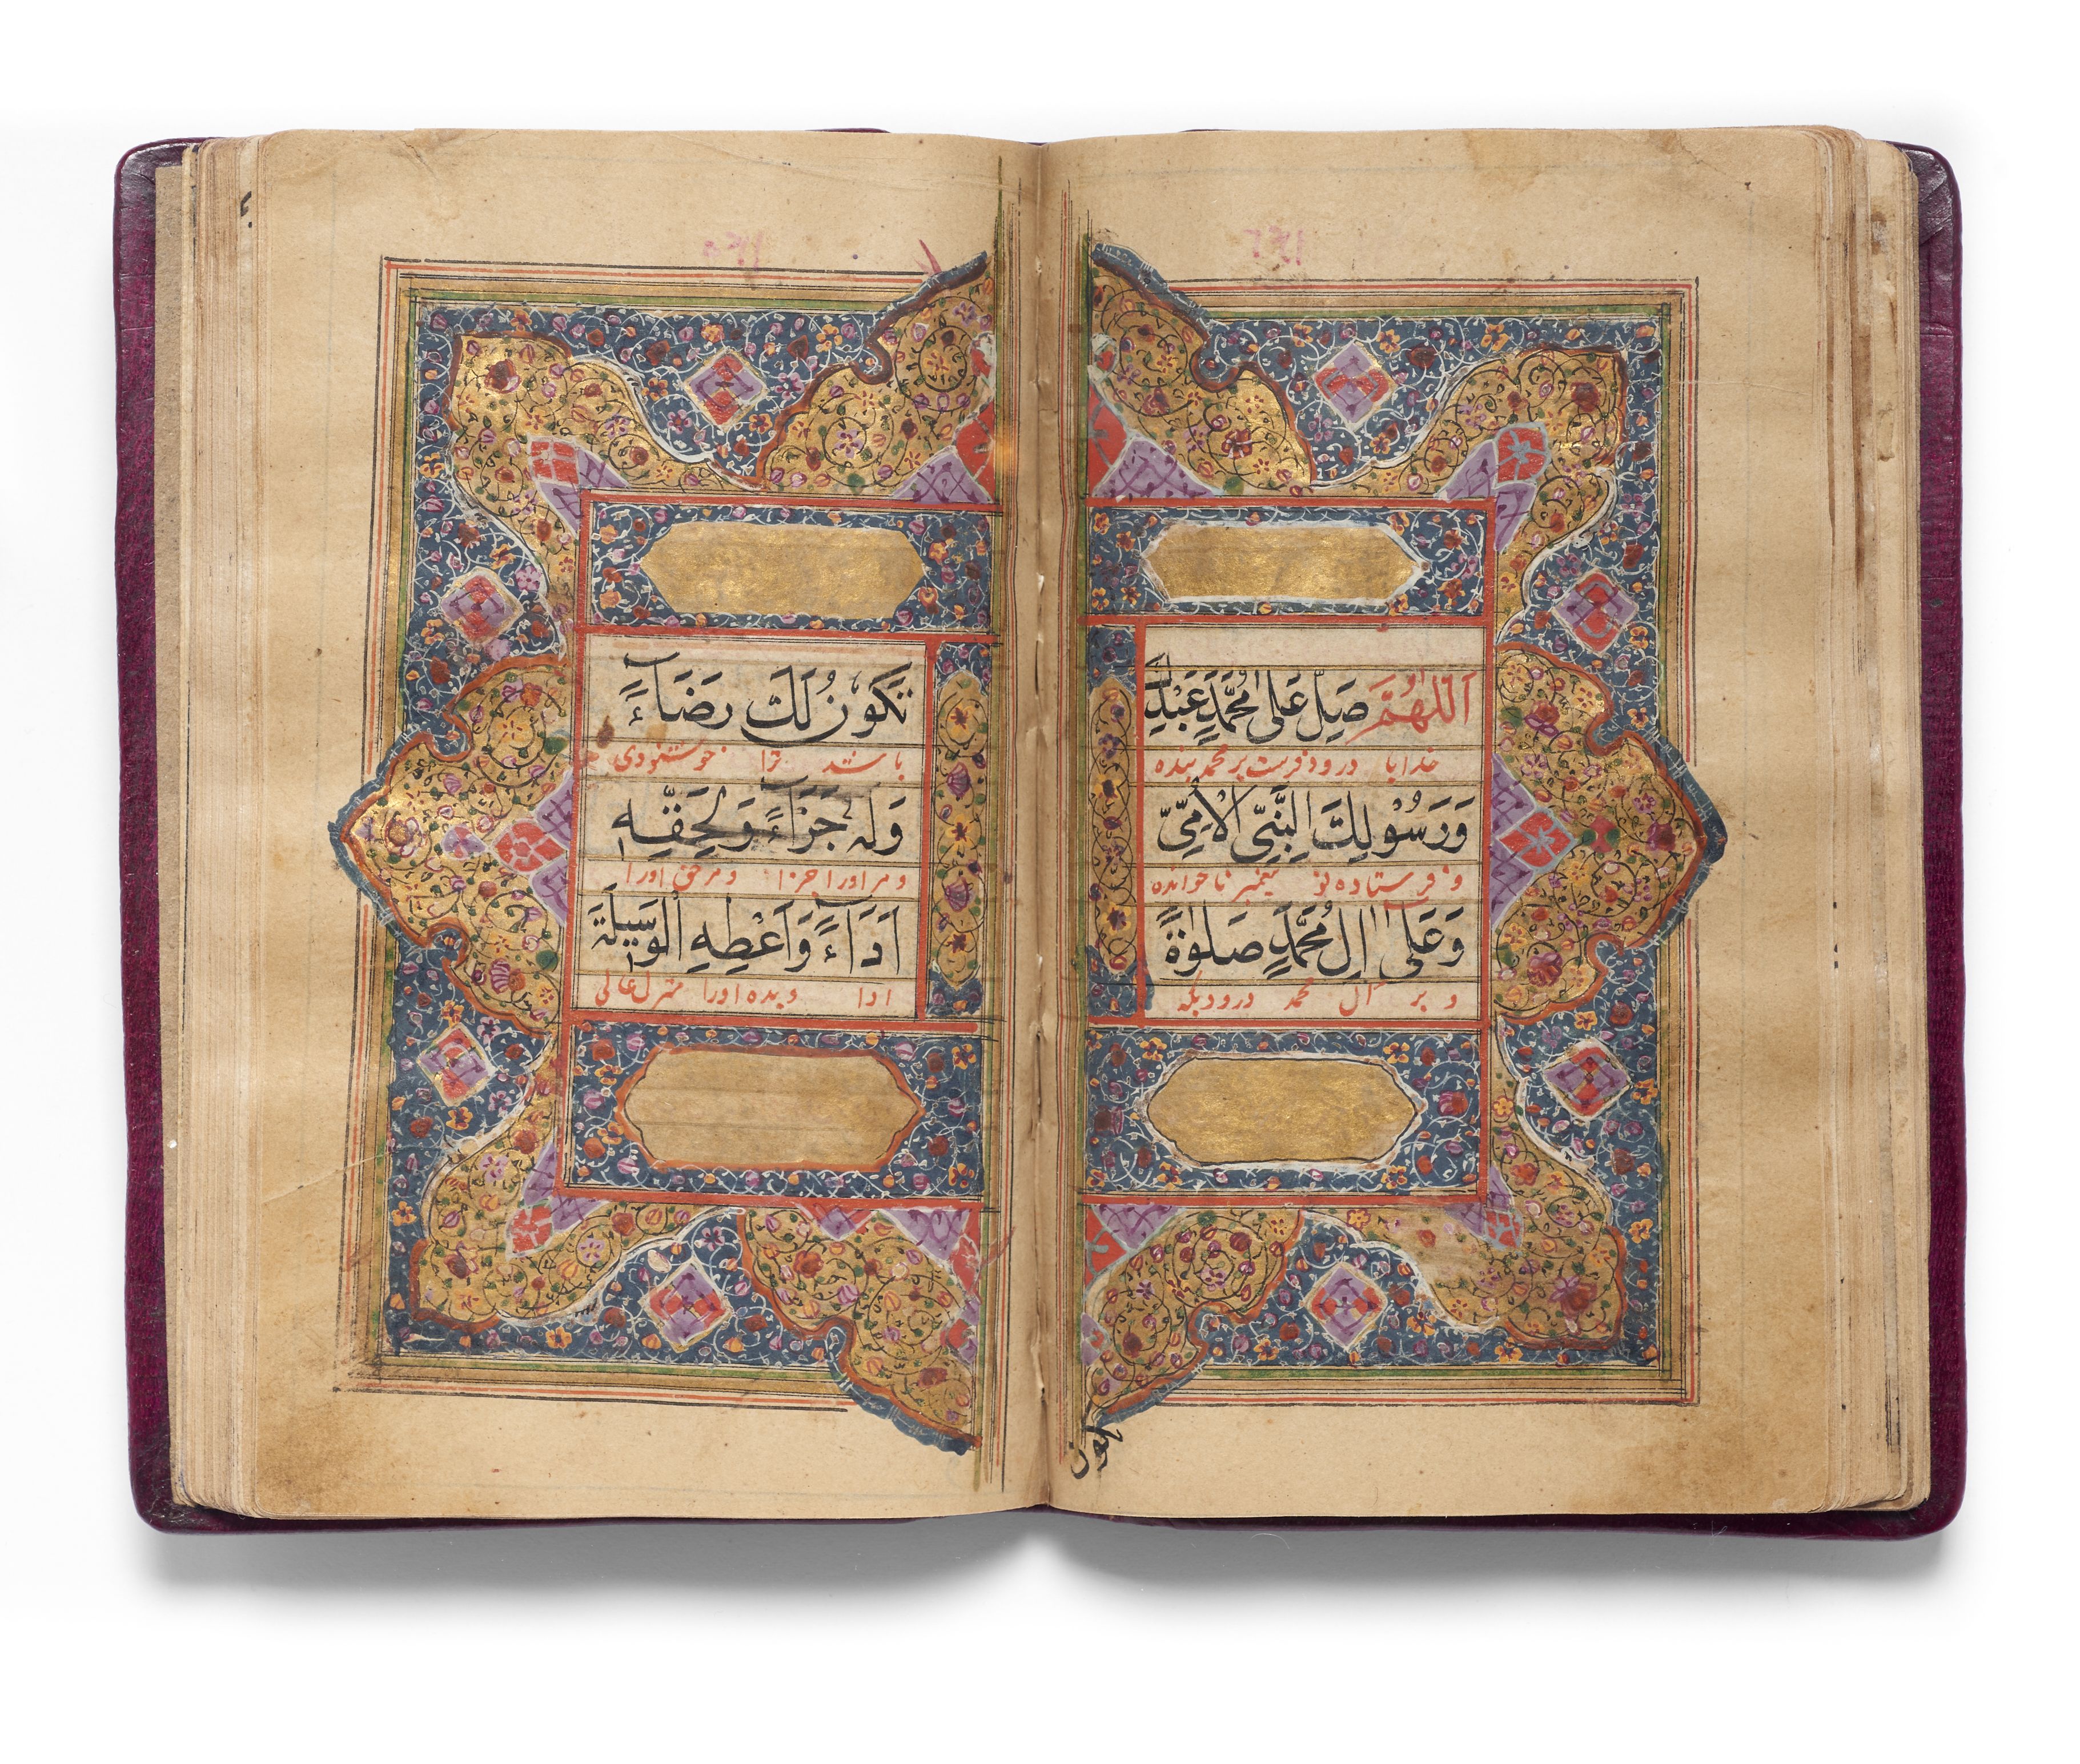 اَللّٰهُمَّ صَلِّ عَلٰى مُحَمَّدٍ عَبْدِكَ
خدایا درود فرست بر محمد بنده
وَرَسُوْلِكَ النَّبِيِّ الْاُمِّيِّ
و فرستاده تو پیغمبر ناخوانده
وَعَلٰٓى اٰلِ مُحَمَّدٍ صَلٰوةً
و بر آل محمد درودیکه
تَكُوْنُ لَكَ رِضَآءً
باشد ترا خوشنودی
وَلَهٗ جَزَآءً وَلِحَقِّهٖ
و مر او را جزا و مر حق او را
اَدَآءً وَاَعْطِهِ الْوَسِيْلَةَ
ادا و بده او را منزل عالی